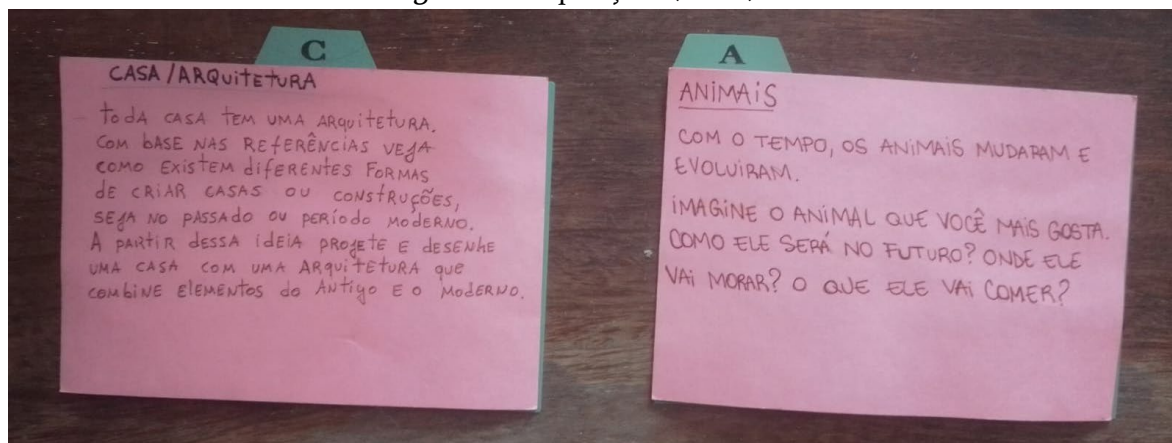 C
CASA/ARQUITETURA
TODA CASA TEM UMA ARQUITETURA.
COM BASE NAS REFERÊNCIAS VEJA
COMO EXISTEM DIFERENTES FORMAS
DE CRIAR CASAS OU CONSTRUÇÕES,
SEJA NO PASSADO OU PERÍODO MODERNO.
A PARTIR DESSA IDEIA PROJETE E DESENHE
UMA CASA COM UMA ARQUITETURA QUE
COMBINE ELEMENTOS DO ANTIGO E O MODERNO.
A
ANIMAIS
COM O TEMPO, OS ANIMAIS MUDARAM E
EVOLUIRAM.
IMAGINE O ANIMAL QUE VOCÊ MAIS GOSTA.
COMO ELE SERÁ NO FUTURO? ONDE ELE
VAI MORAR? O QUE ELE VAI COMER?